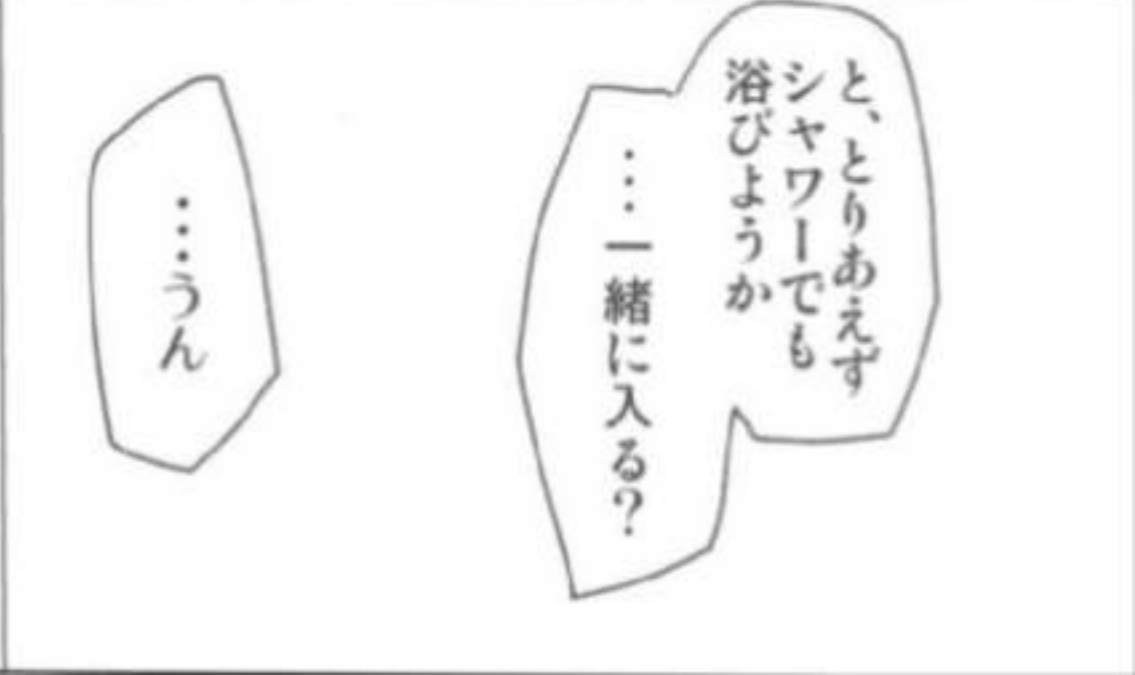 と、とりあえず
シャワーでも
浴びようか
…一緒に入る?
…うん